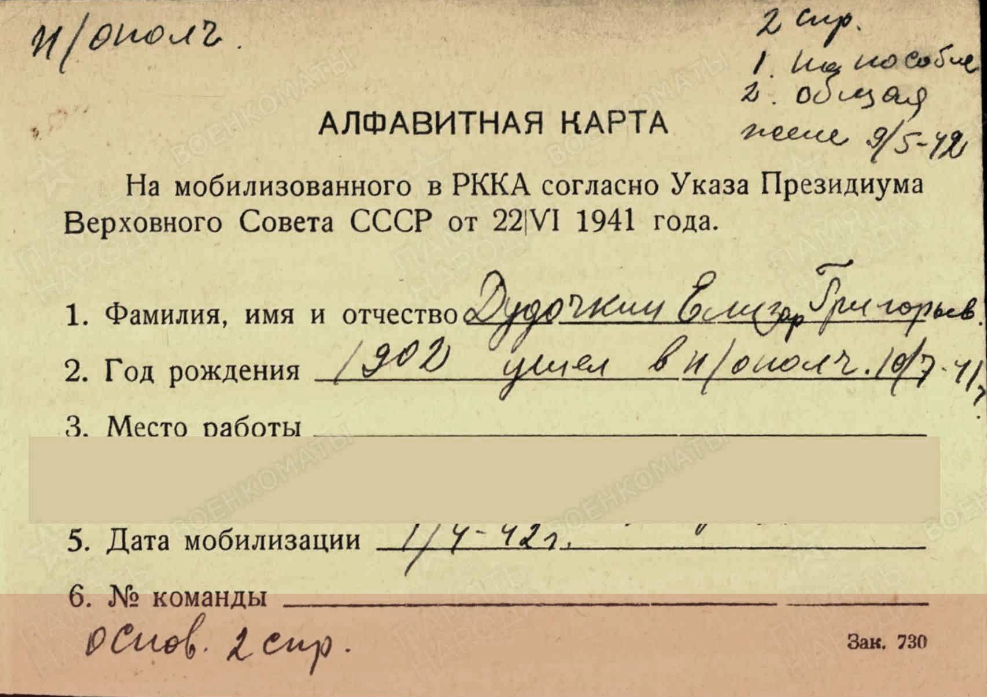 н/ополч.
2 спр.
1. на пособие
2. общая
жене 9/5-42
АЛФАВИТНАЯ КАРТА
На мобилизованного в РККА согласно Указа Президиума
Верховного Совета СССР от 22|VI 1941 года.
1. Фамилия, имя и отчество Дудочкин Елизар Григорьев.
2. Год рождения 1902 ушел в н/ополч.
3. Место работы
5. Дата мобилизации 1/4-42г. "
6. № команды
основ. 2 спр.
Зак. 730